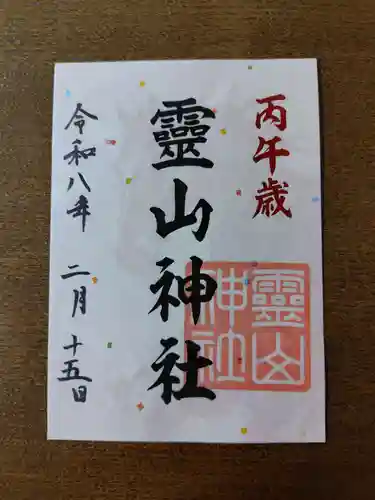 丙午歳
靈山神社
靈山神社
令和八年 二月 十五日